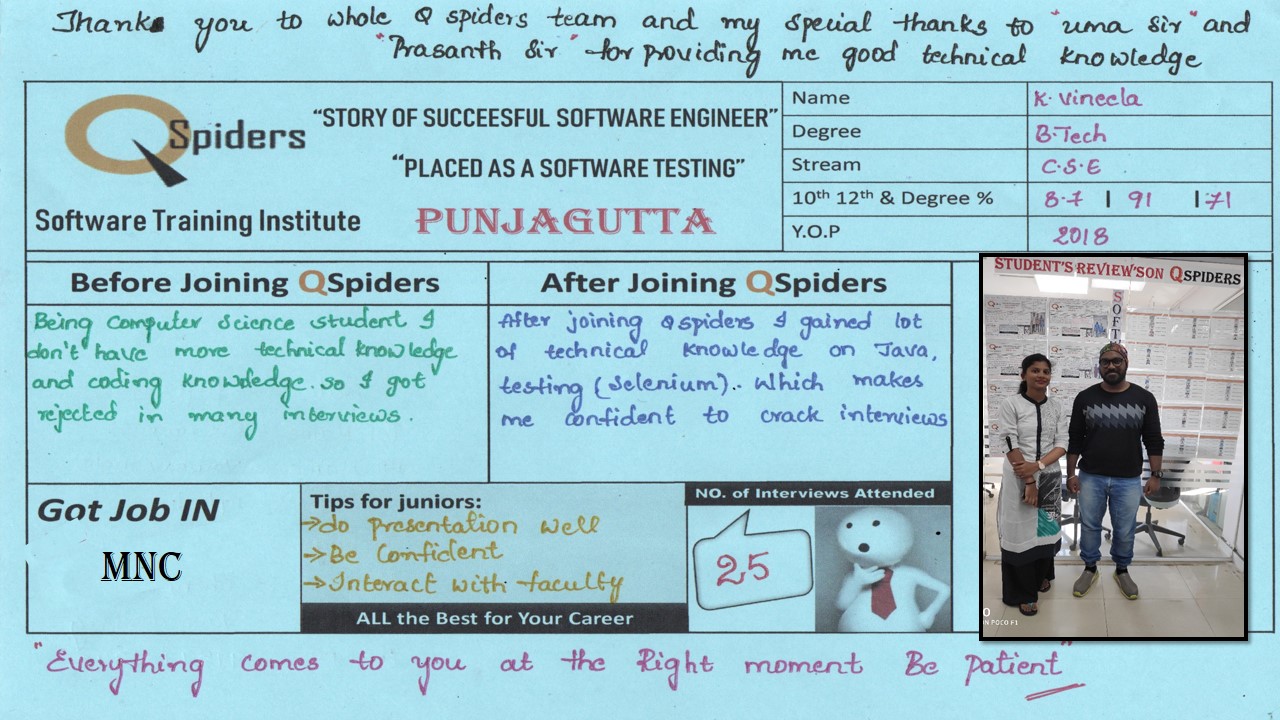 Thanks you to whole Q spiders team and my special thanks to "uma sir" and
"Prasanth Sir" for providing me good technical knowledge
QSpiders
Software Training Institute
"STORY OF SUCCEESFUL SOFTWARE ENGINEER"
"PLACED AS A SOFTWARE TESTING"
PUNJAGUTTA
Name K. Vineela
Degree B.Tech
Stream C.S.E
10th 12th & Degree % 8.7 | 91 | 71
Y.O.P 2018
Before Joining QSpiders
Being Computer science student I
don't have more technical knowledge
and coding knowledge. so I got
rejected in many interviews.
After Joining QSpiders
After joining Qspiders I gained lot
of technical knowledge on Java,
testing (selenium).. which makes
me confident to crack interviews
STUDENT'S REVIEW'S ON QSPIDERS
SOFT
ON POCO F1
Got Job IN
MNC
Tips for juniors:
→do presentation well
→Be Confident
→Interact with faculty
ALL the Best for Your Career
NO. of Interviews Attended
25
"Everything comes to you at the Right moment Be patient"